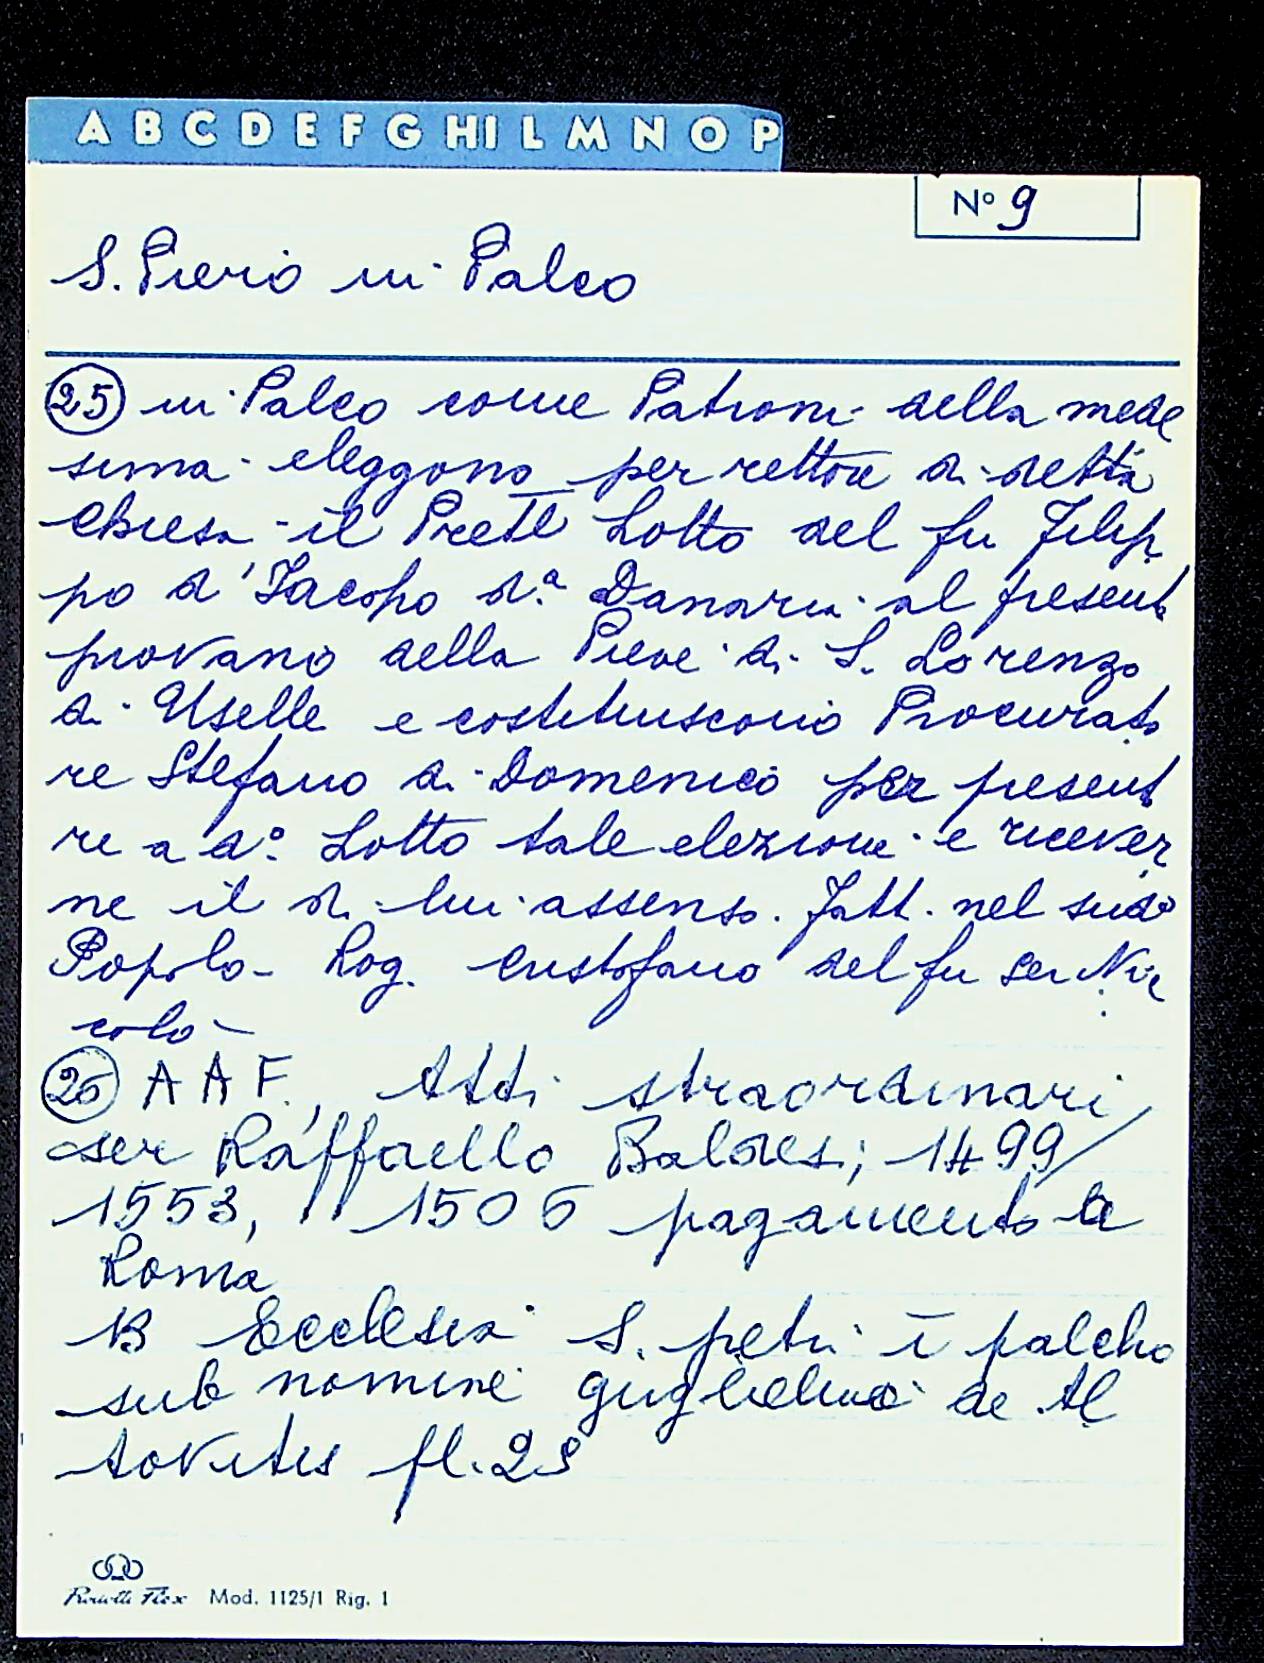 A B C D E F G HI L M N O P
N° 9
S. Piero in Palco
25 in Palco come Patroni della mede
sima eleggono per rettore di detta
Chiesa il Prete Lotto del fu Filip
po d'Iacopo d.a al present
piovano della Pieve di S. Lorenzo
di Uselle e costituiscono Procurato
re Stefano di Domenico per present
re a d.o Lotto tale elezione e ricever
ne il di lui assenso. Fatt. nel sud.o
Popolo - Rog. Cristofano del fu ser Nic
colò -
26 A A F., Atti straordinari
ser Raffaello Baldesi; 1499/
1553, 1506 pagamento a
Roma
Ecclesia S. petri ī palcho
sub nomine guglielmi de Al
tovitis fl. 25
Mod. 1125/1 Rig. 1